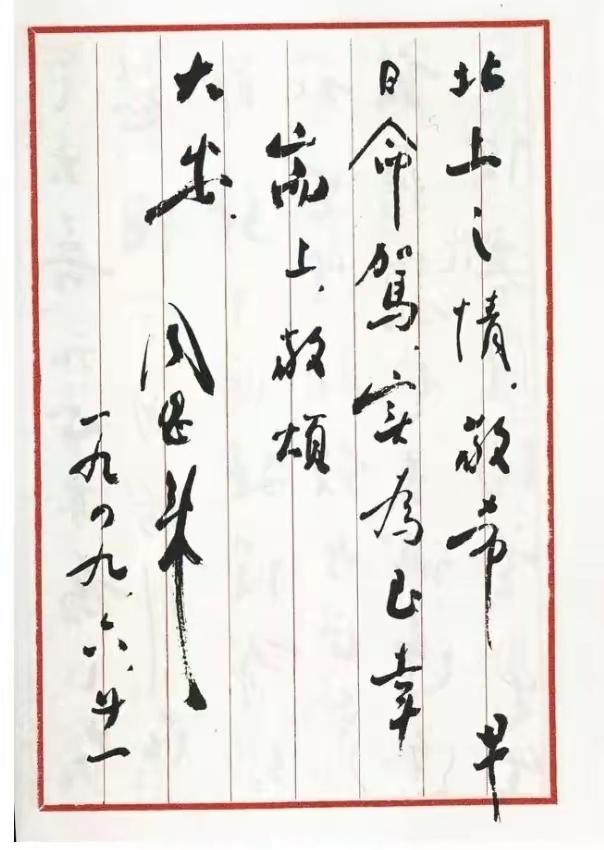 北上之情，敬希 早
日命駕，实為至幸
耑上，敬頌
大安． 周恩来
一九四九．六．廿一